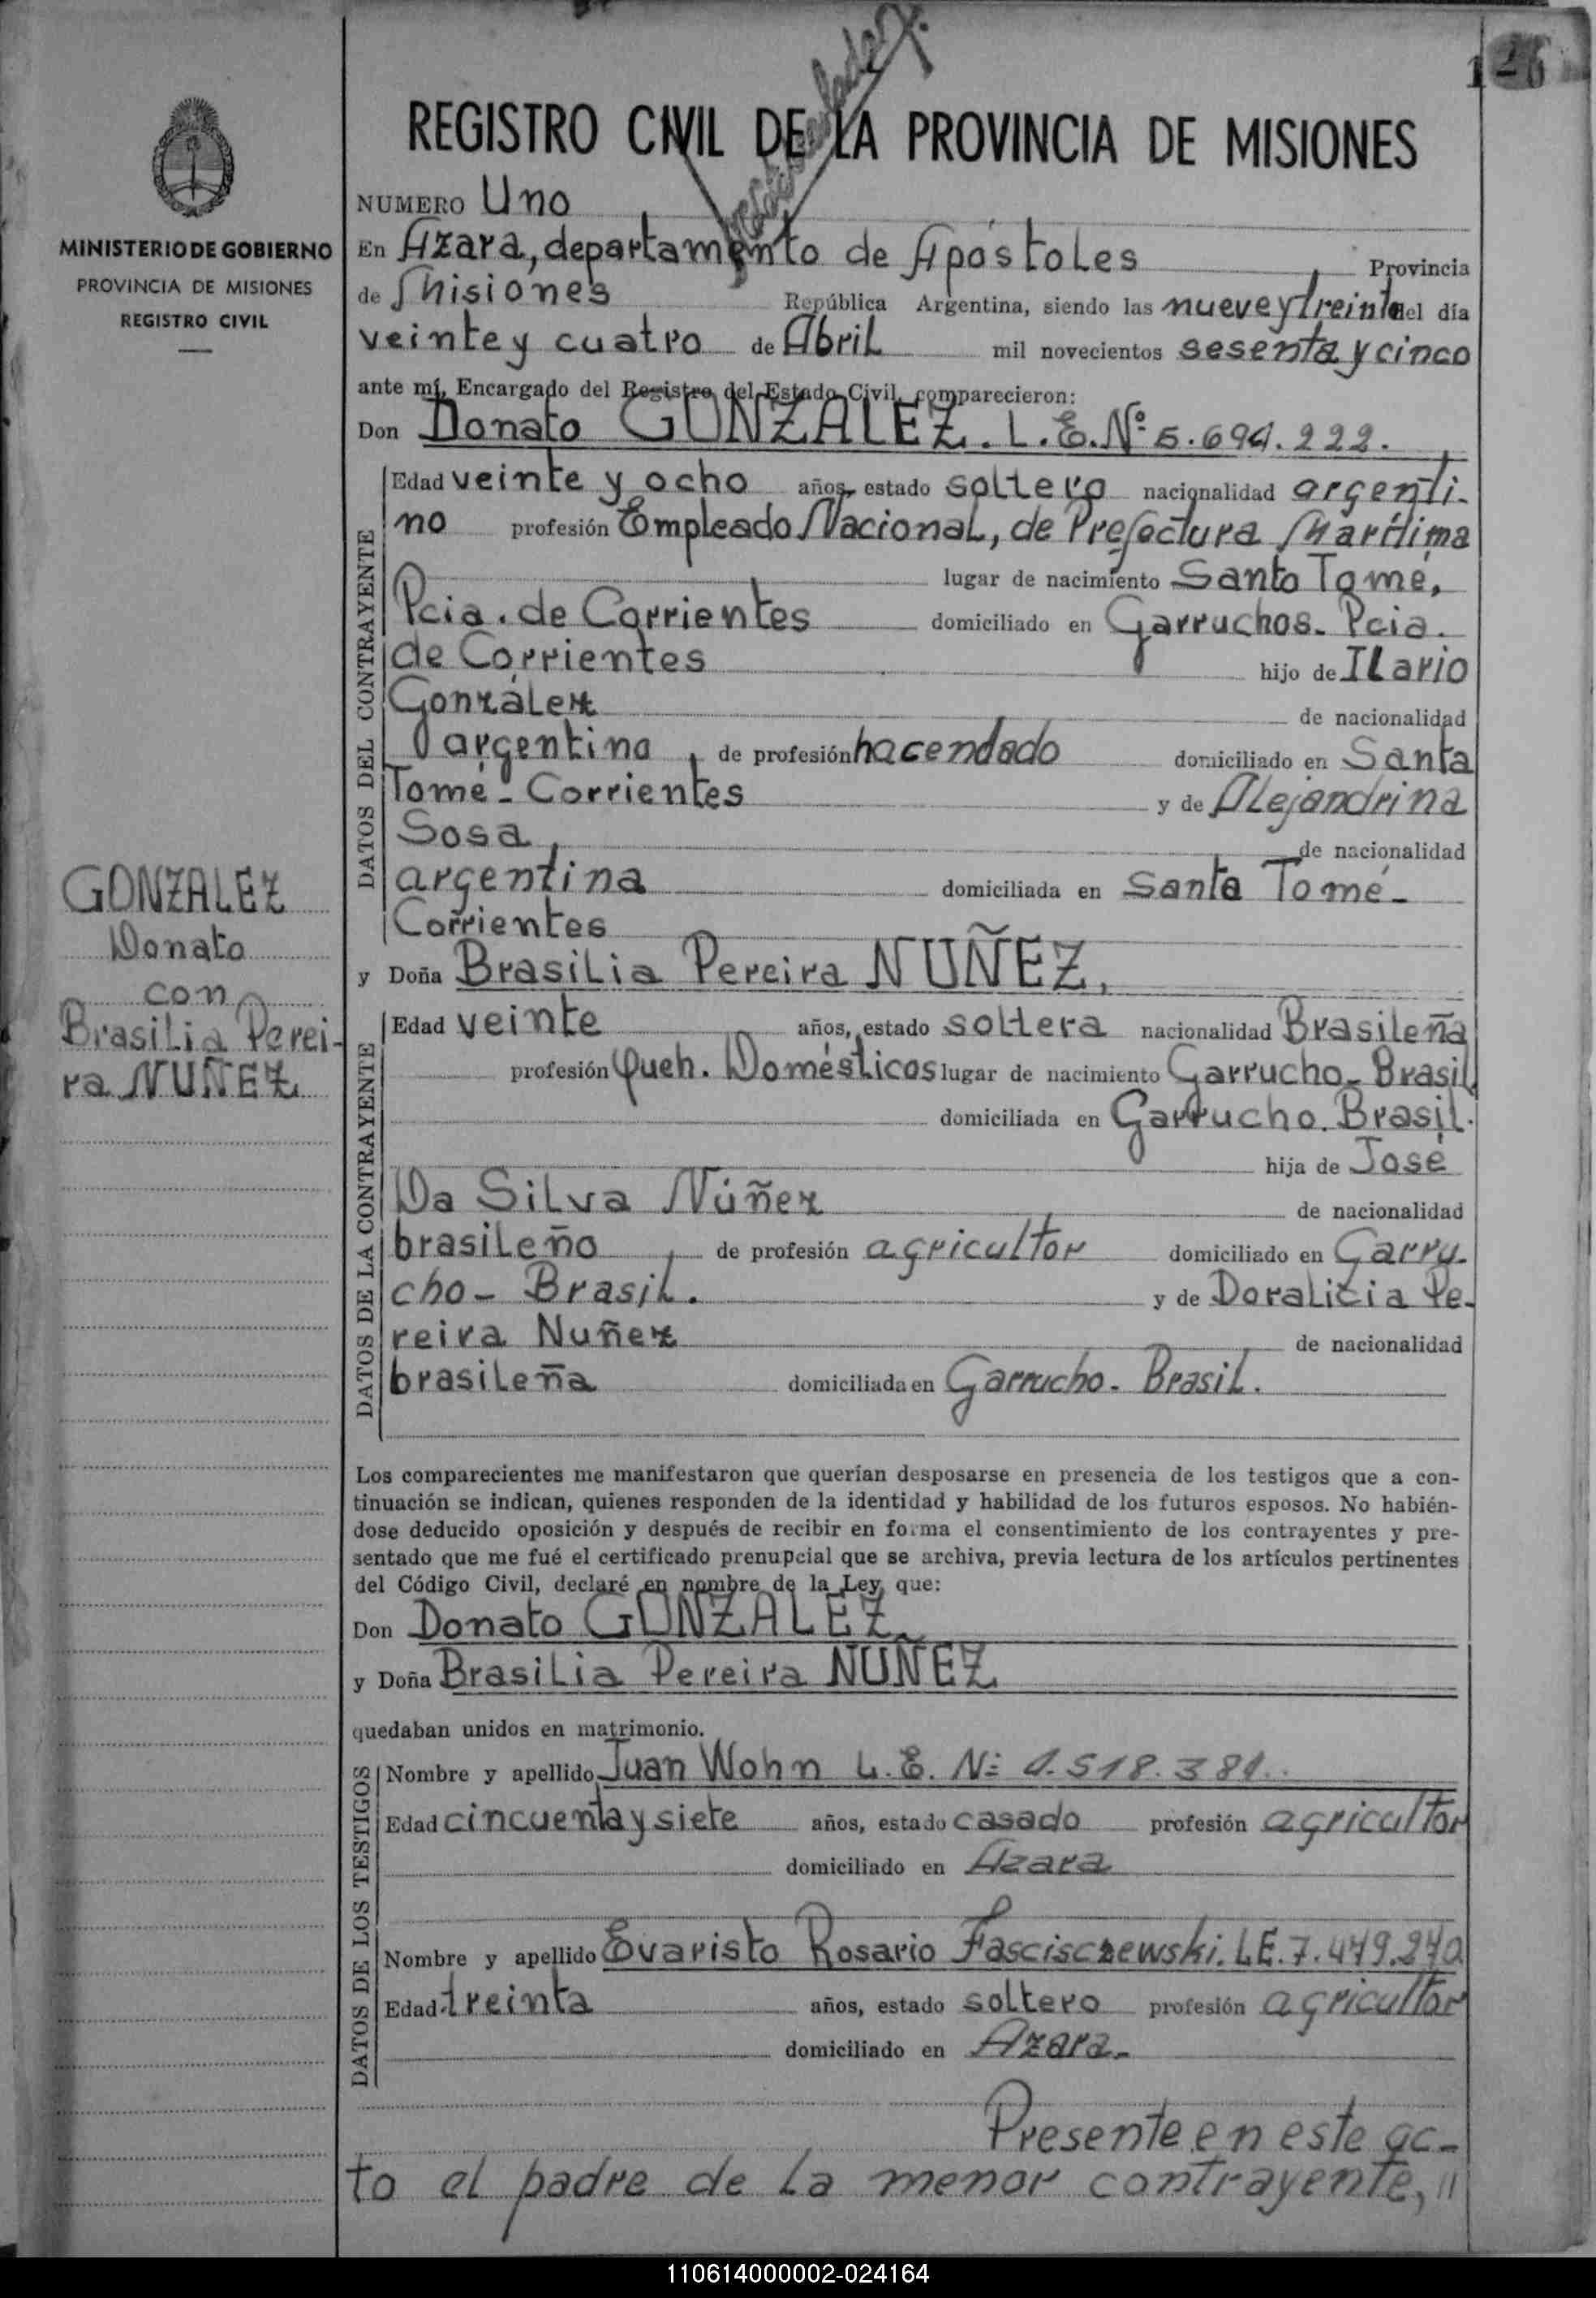 126
REGISTRO CIVIL DE LA PROVINCIA DE MISIONES
MINISTERIO DE GOBIERNO
PROVINCIA DE MISIONES
REGISTRO CIVIL
GONZALEZ
Donato
con
Brasilia Perei-
ra NUÑEZ
NUMERO Uno
En Azara, departamento de Apóstoles Provincia
de Misiones República Argentina, siendo las nueve y treinta del día
veinte y cuatro de Abril mil novecientos sesenta y cinco
ante mí, Encargado del Registro del Estado Civil, comparecieron:
Don Donato GONZALEZ. L.E. Nº 5.694.222.
DATOS DEL CONTRAYENTE
Edad veinte y ocho años, estado soltero nacionalidad argenti-
no profesión Empleado Nacional, de Prefectura Marítima
lugar de nacimiento Santo Tomé,
Pcia. de Corrientes domiciliado en Garruchos. Pcia.
de Corrientes hijo de ILario
González de nacionalidad
argentino, de profesión hacendado domiciliado en Santa
Tomé - Corrientes y de Alejandrina
Sosa, de nacionalidad
argentina domiciliada en Santa Tomé-
Corrientes
y Doña Brasilia Pereira NUÑEZ,
DATOS DE LA CONTRAYENTE
Edad veinte años, estado soltera nacionalidad Brasileña
profesión Queh. Domésticos lugar de nacimiento Garrucho- Brasil
domiciliada en Garrucho. Brasil.
hija de José
Da Silva Núñez de nacionalidad
brasileño, de profesión agricultor domiciliado en Garru-
cho- Brasil. y de Doralicia Pe-
reira Nuñez de nacionalidad
brasileña domiciliada en Garrucho. Brasil.
Los comparecientes me manifestaron que querían desposarse en presencia de los testigos que a con-
tinuación se indican, quienes responden de la identidad y habilidad de los futuros esposos. No habién-
dose deducido oposición y después de recibir en forma el consentimiento de los contrayentes y pre-
sentado que me fué el certificado prenupcial que se archiva, previa lectura de los artículos pertinentes
del Código Civil, declaré en nombre de la Ley, que:
Don Donato GONZALEZ
y Doña Brasilia Pereira NUÑEZ
quedaban unidos en matrimonio.
DATOS DE LOS TESTIGOS
Nombre y apellido Juan Wohn L.E. Nº 1.518.381.
Edad cincuenta y siete años, estado casado profesión agricultor
domiciliado en Azara
Nombre y apellido Evaristo Rosario Fascisczewski. L.E. 7.479.240
Edad treinta años, estado soltero profesión agricultor
domiciliado en Azara.
Presente en este ac-
to el padre de la menor contrayente, //
110614000002-024164